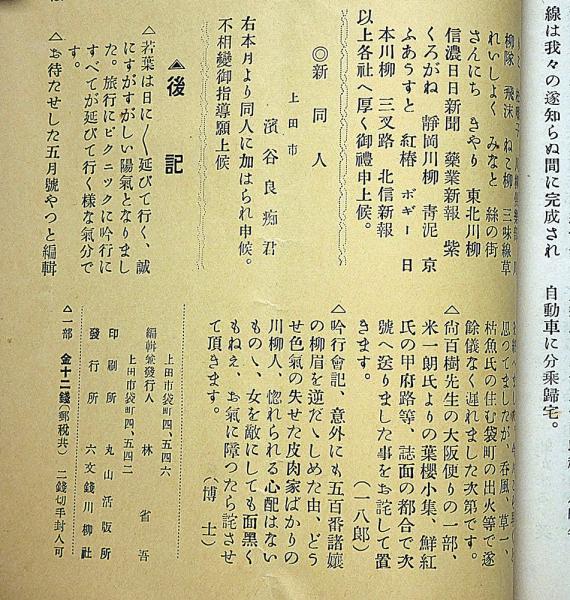 線は我々の遂知らぬ間に完成され 自動車に分乘歸宅。
柳隊 飛沫 こね柳 三味線草
れいしょく みなと 絲の街
さんにち きやり 東北川柳
信濃日日新聞 藥業新報 紫
くろがね 靜岡川柳 靑泥 京
ふあうすと 紅椿 ボギー 日
本川柳 三叉路 北信新報
以上各社へ厚く御禮申上候。
◎新同人
上田市
濱谷良痴君
右本月より同人に加はられ申候。
不相變御指導願上候
▲後記
△若葉は日に〱延びて行く、誠
にすがすがしい陽氣となりまし
た。旅行にピクニックに吟行に
すべてが延びて行く樣な氣分で
す。
△お待たせした五月號やつと編輯
思つてましたが、春風、草一、
枯魚氏の住む袋町の出火等で遂
餘儀なく遲れました次第です。
△尙百樹先生の大阪便りの一部、
米一朗氏よりの葉櫻小集、鮮紅
氏の甲府路等、誌面の都合で次
號へ送りました事をお詫して置
きます。 (一八郎)
△吟行會記、意外にも五百番諸孃
の柳眉を逆だゝしめた由、どう
せ色氣の失せた皮肉家ばかりの
川柳人、惚れられる心配はない
ものゝ、女を敵にしても面黑く
もねぇ、お氣に障つたら詫させ
て頂きます。 (博士)
上田市袋町四、五四六
編輯兼發行人 林省吾
上田市袋町四、五四二
印刷所 丸山活版所
發行所 六文錢川柳社
△一部 金十二錢(郵稅共) 二錢切手封入可